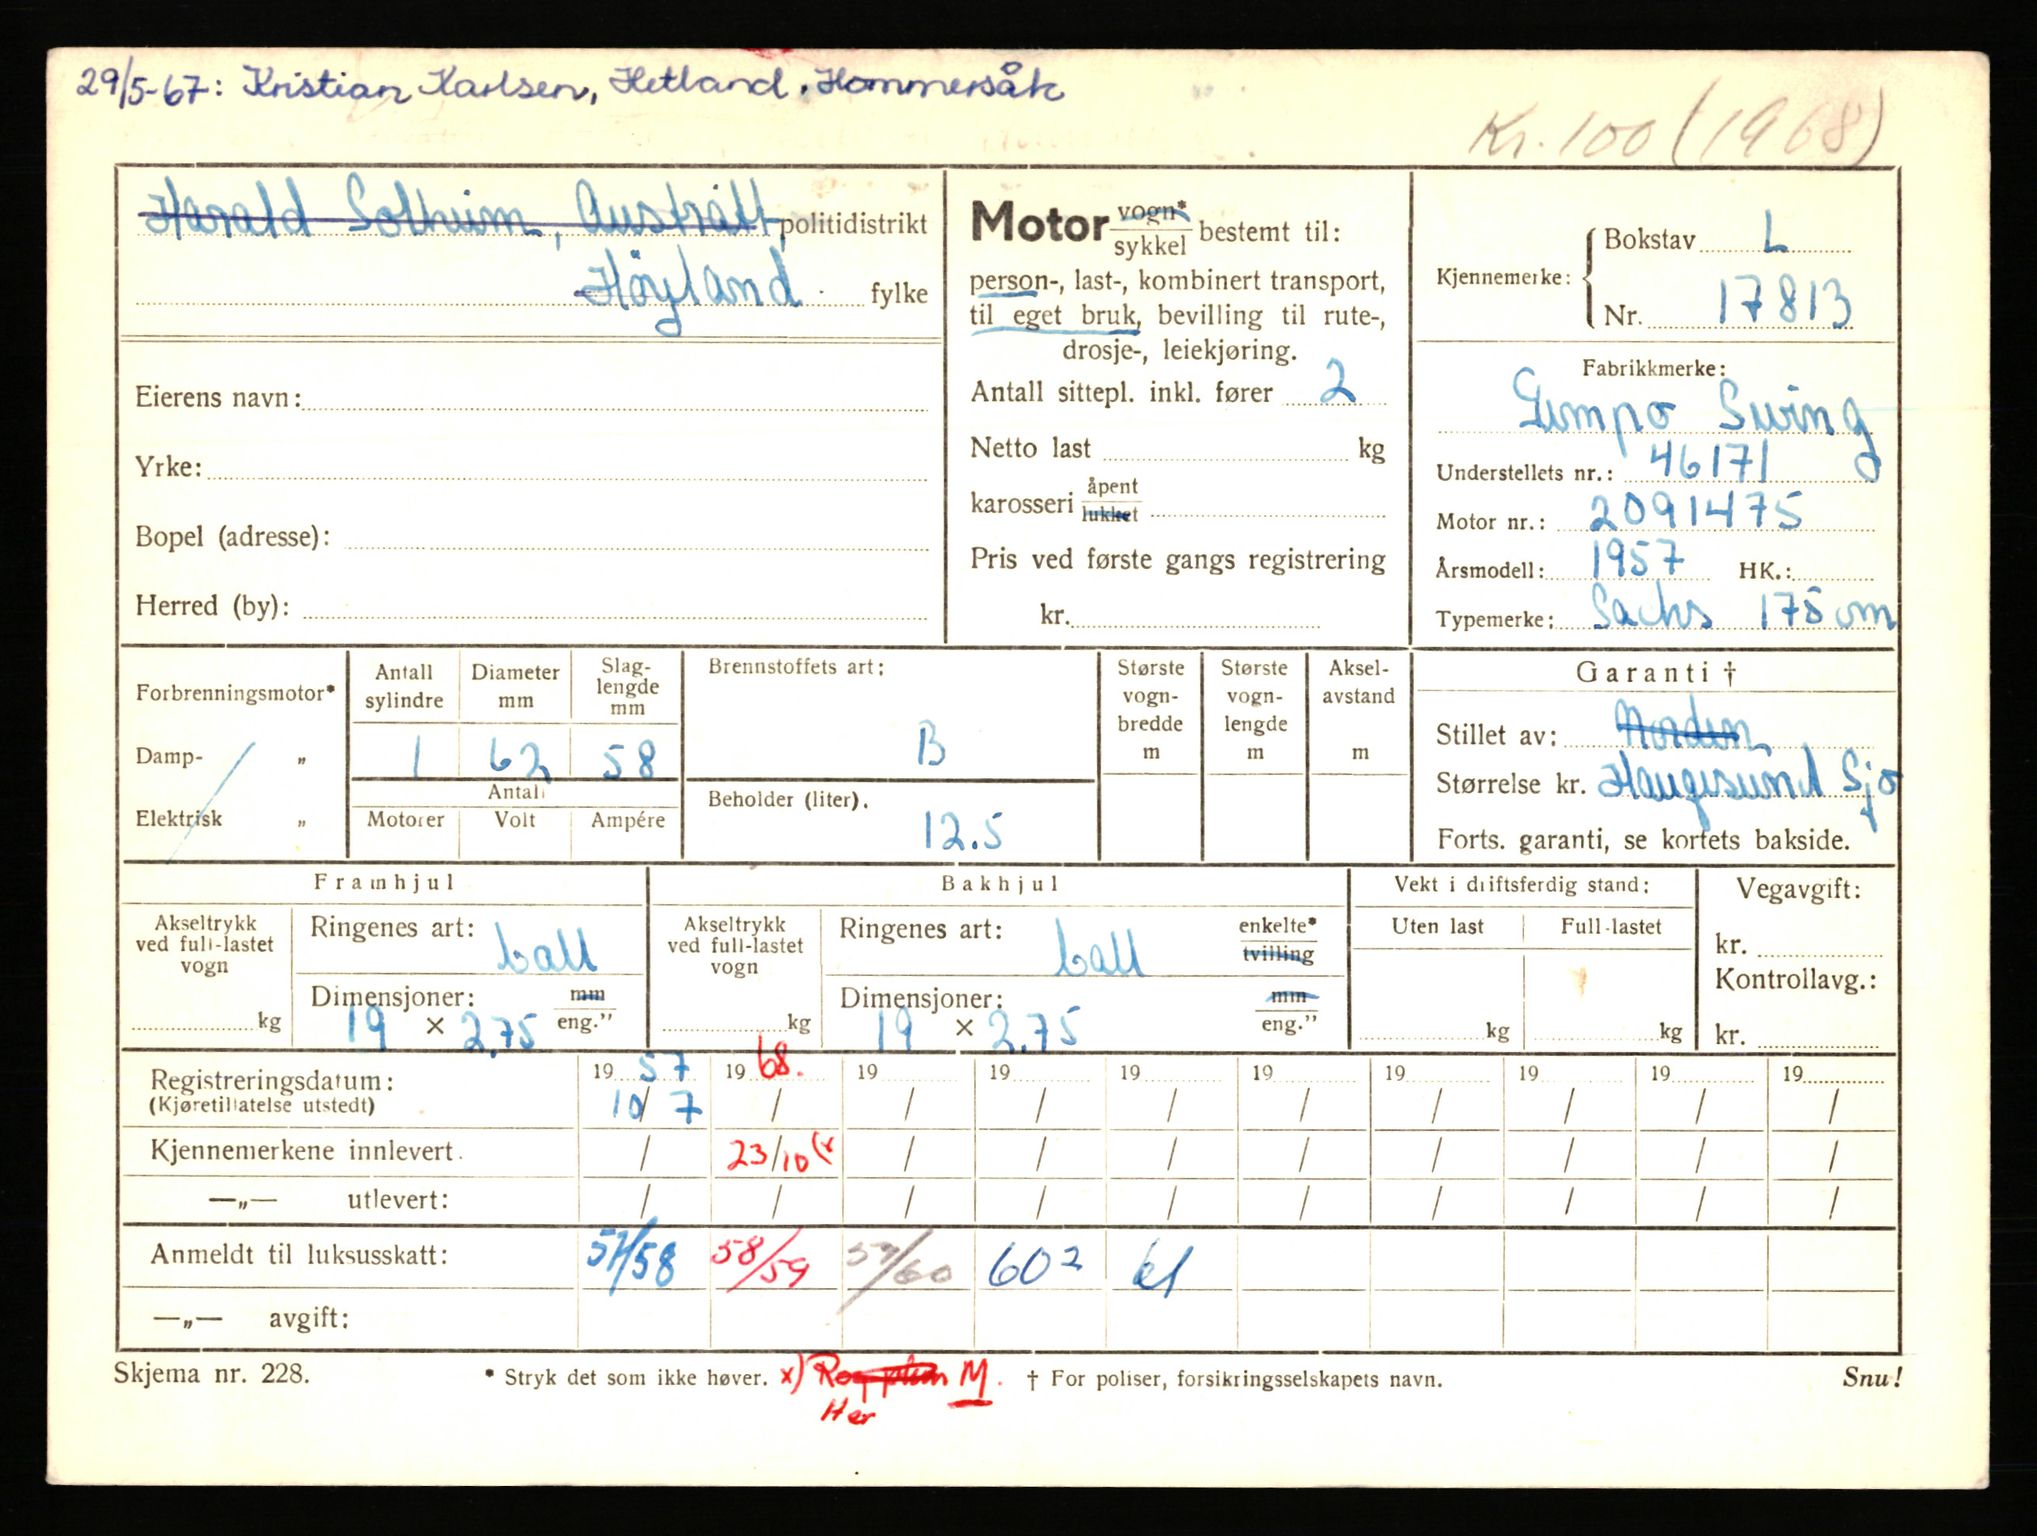 29/5-67: Kristian Karlsen, Hetland. Hommersåk
Kr. 100 (1968)
Harald Solheim, Austrått, politidistrikt
Høyland fylke
Eierens navn:
Yrke:
Bopel (adresse):
Herred (by):
Motor vogn* sykkel bestemt til:
person-, last-, kombinert transport,
til eget bruk, bevilling til rute-,
drosje-, leiekjøring.
Antall sittepl. inkl. fører 2
Netto last kg
karosseri åpent lukket
Pris ved første gangs registrering
kr.
Kjennemerke: Bokstav L
Nr. 17813
Fabrikkmerke:
Gumpo Swing
Understellets nr.: 46171
Motor nr.: 2091475
Årsmodell: 1957 HK.:
Typemerke: Sachs 175 cm
Forbrenningsmotor*
Damp- „
Elektrisk „
Antall sylindre Diameter mm Slag-lengde mm
1 62 58
Antall
Motorer Volt Ampére
Brennstoffets art:
B
Beholder (liter).
12.5
Største vogn-bredde m
Største vogn-lengde m
Aksel-avstand m
Garanti †
Stillet av: Norden
Størrelse kr. Haugesund Sjø
Forts. garanti, se kortets bakside.
Framhjul
Akseltrykk ved full-lastet vogn kg
Ringenes art: ball
Dimensjoner: mm eng.”
19 × 2,75
Bakhjul
Akseltrykk ved full-lastet vogn kg
Ringenes art: ball enkelte* tvilling
Dimensjoner: mm eng.”
19 × 2.75
Vekt i driftsferdig stand:
Uten last Full-lastet
kg kg
Vegavgift:
kr.
Kontrollavg.:
kr.
Registreringsdatum: 19 57 19 68. 19 19 19 19 19 19 19 19
(Kjøretillatelse utstedt) 10/7 / / / / / / / / /
Kjennemerkene innlevert. / 23/10 (x / / / / / / / /
—„— utlevert: / / / / / / / / / /
Anmeldt til luksusskatt: 57/58 58/59 59/60 602 61
—„— avgift:
Skjema nr. 228. * Stryk det som ikke høver. x) M. † For poliser, forsikringsselskapets navn. Snu!
Her